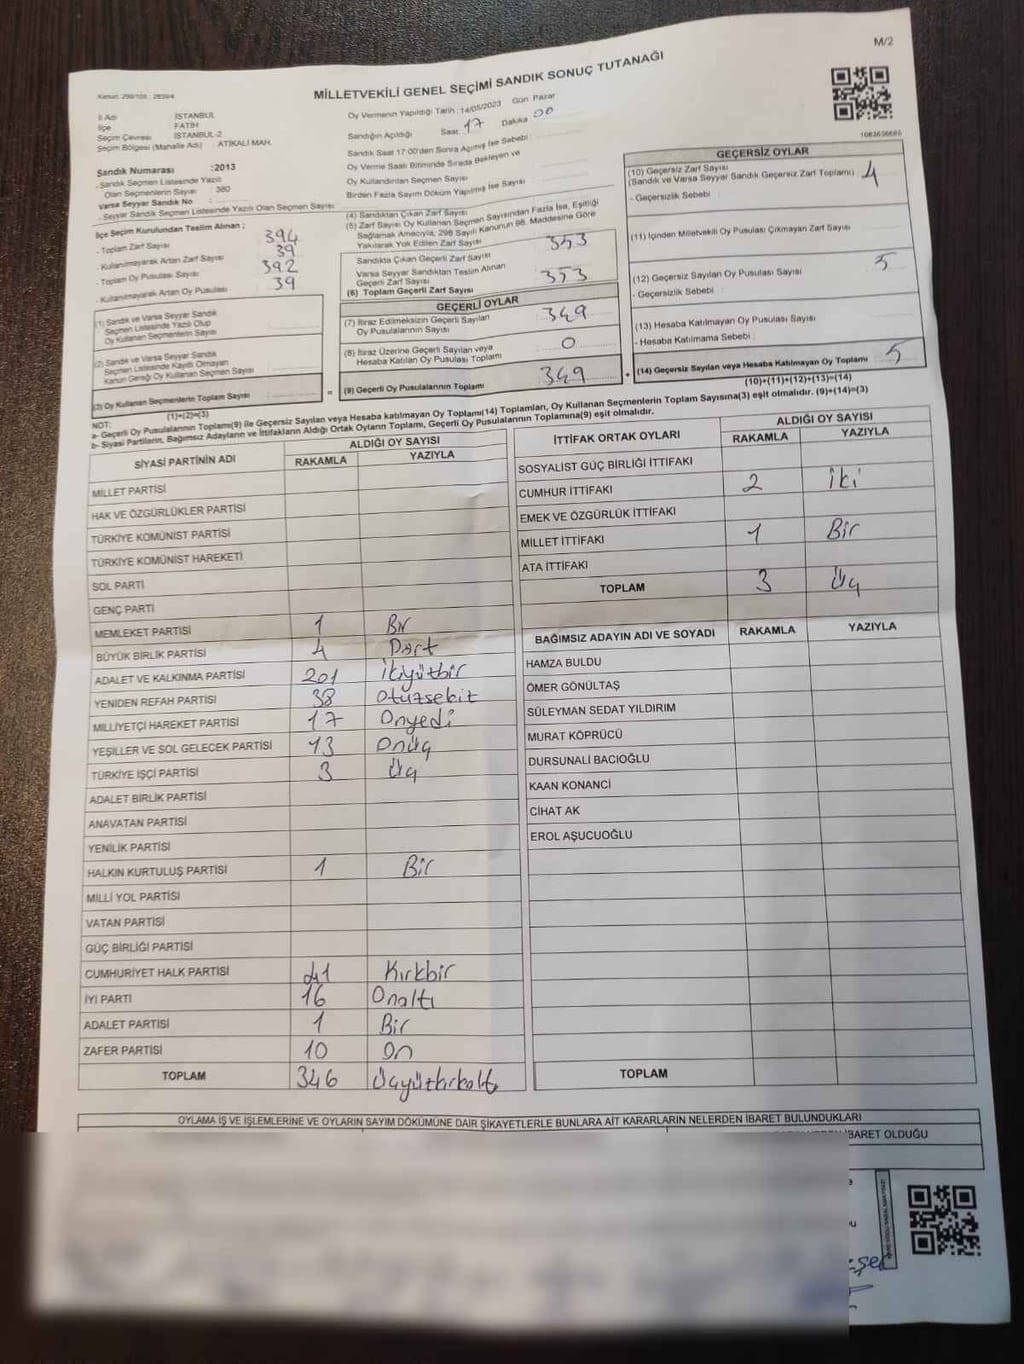 M/2
MİLLETVEKİLİ GENEL SEÇİMİ SANDIK SONUÇ TUTANAĞI
İl Adı : İSTANBUL
İlçe : FATİH
Seçim Çevresi : İSTANBUL-2
Seçim Bölgesi (Mahalle Adı) : ATİKALİ MAH.
Oy Vermenin Yapıldığı Tarih : 14/05/2023 Gün Pazar
Sandığın Açıldığı Saat 17 Dakika 00
Sandık Saat 17:00'den Sonra Açılmış İse Sebebi :
Oy Verme Saati Bitiminde Sırada Bekleyen ve
Oy Kullandırılan Seçmen Sayısı
Birden Fazla Sayım Döküm Yapılmış İse Sayısı
Sandık Numarası : 2013
- Sandık Seçmen Listesinde Yazılı
Olan Seçmenlerin Sayısı : 380
Varsa Seyyar Sandık No :
- Seyyar Sandık Seçmen Listesinde Yazılı Olan Seçmen Sayısı :
İlçe Seçim Kurulundan Teslim Alınan ;
- Toplam Zarf Sayısı 394
- Kullanılmayarak Artan Zarf Sayısı 39
- Toplam Oy Pusulası Sayısı 392
- Kullanılmayarak Artan Oy Pusulası 39
(1) Sandık ve Varsa Seyyar Sandık
Seçmen Listesinde Yazılı Olup
Oy Kullanan Seçmenlerin Sayısı
(2) Sandık ve Varsa Seyyar Sandık
Seçmen Listesinde Kayıtlı Olmayan
Kanun Gereği Oy Kullanan Seçmen Sayısı
(3) Oy Kullanan Seçmenlerin Toplam Sayısı
(1)+(2)=(3)
(4) Sandıktan Çıkan Zarf Sayısı
(5) Zarf Sayısı Oy Kullanan Seçmen Sayısından Fazla İse, Eşitliği
Sağlamak Amacıyla, 298 Sayılı Kanunun 98. Maddesine Göre
Yakılarak Yok Edilen Zarf Sayısı
Sandıkta Çıkan Geçerli Zarf Sayısı 353
Varsa Seyyar Sandıktan Teslim Alınan
Geçerli Zarf Sayısı
(6) Toplam Geçerli Zarf Sayısı 353
GEÇERLİ OYLAR
(7) İtiraz Edilmeksizin Geçerli Sayılan
Oy Pusulalarının Sayısı 349
(8) İtiraz Üzerine Geçerli Sayılan veya
Hesaba Katılan Oy Pusulası Toplamı 0
= (9) Geçerli Oy Pusulalarının Toplamı 349 +
1083656665
GEÇERSİZ OYLAR
(10) Geçersiz Zarf Sayısı
(Sandık ve Varsa Seyyar Sandık Geçersiz Zarf Toplamı) 4
- Geçersizlik Sebebi :
(11) İçinden Milletvekili Oy Pusulası Çıkmayan Zarf Sayısı
(12) Geçersiz Sayılan Oy Pusulası Sayısı 5
- Geçersizlik Sebebi :
(13) Hesaba Katılmayan Oy Pusulası Sayısı
- Hesaba Katılmama Sebebi :
(14) Geçersiz Sayılan veya Hesaba Katılmayan Oy Toplamı 5
(10)+(11)+(12)+(13)=(14)
NOT:
a- Geçerli Oy Pusulalarının Toplamı(9) ile Geçersiz Sayılan veya Hesaba katılmayan Oy Toplamı(14) Toplamları, Oy Kullanan Seçmenlerin Toplam Sayısına(3) eşit olmalıdır. (9)+(14)=(3)
b- Siyasi Partilerin, Bağımsız Adayların ve İttifakların Aldığı Ortak Oyların Toplamı, Geçerli Oy Pusulalarının Toplamına(9) eşit olmalıdır.
SİYASİ PARTİNİN ADI ALDIĞI OY SAYISI
RAKAMLA YAZIYLA
MİLLET PARTİSİ
HAK VE ÖZGÜRLÜKLER PARTİSİ
TÜRKİYE KOMÜNİST PARTİSİ
TÜRKİYE KOMÜNİST HAREKETİ
SOL PARTİ
GENÇ PARTİ
MEMLEKET PARTİSİ 1 Bir
BÜYÜK BİRLİK PARTİSİ 4 Dört
ADALET VE KALKINMA PARTİSİ 201 ikiyüzbir
YENİDEN REFAH PARTİSİ 38 otuzsekiz
MİLLİYETÇİ HAREKET PARTİSİ 17 Onyedi
YEŞİLLER VE SOL GELECEK PARTİSİ 13 Onüç
TÜRKİYE İŞÇİ PARTİSİ 3 Üç
ADALET BİRLİK PARTİSİ
ANAVATAN PARTİSİ
YENİLİK PARTİSİ
HALKIN KURTULUŞ PARTİSİ 1 Bir
MİLLİ YOL PARTİSİ
VATAN PARTİSİ
GÜÇ BİRLİĞİ PARTİSİ
CUMHURİYET HALK PARTİSİ 41 Kırkbir
İYİ PARTİ 16 Onaltı
ADALET PARTİSİ 1 Bir
ZAFER PARTİSİ 10 On
TOPLAM 346 Üçyüzkırkaltı
İTTİFAK ORTAK OYLARI ALDIĞI OY SAYISI
RAKAMLA YAZIYLA
SOSYALİST GÜÇ BİRLİĞİ İTTİFAKI
CUMHUR İTTİFAKI 2 iki
EMEK VE ÖZGÜRLÜK İTTİFAKI
MİLLET İTTİFAKI 1 Bir
ATA İTTİFAKI
TOPLAM 3 Üç
BAĞIMSIZ ADAYIN ADI VE SOYADI RAKAMLA YAZIYLA
HAMZA BULDU
ÖMER GÖNÜLTAŞ
SÜLEYMAN SEDAT YILDIRIM
MURAT KÖPRÜCÜ
DURSUNALİ BACIOĞLU
KAAN KONANCİ
CİHAT AK
EROL AŞUCUOĞLU
TOPLAM
OYLAMA İŞ VE İŞLEMLERİNE VE OYLARIN SAYIM DÖKÜMÜNE DAİR ŞİKAYETLERLE BUNLARA AİT KARARLARIN NELERDEN İBARET BULUNDUKLARI
İBARET OLDUĞU